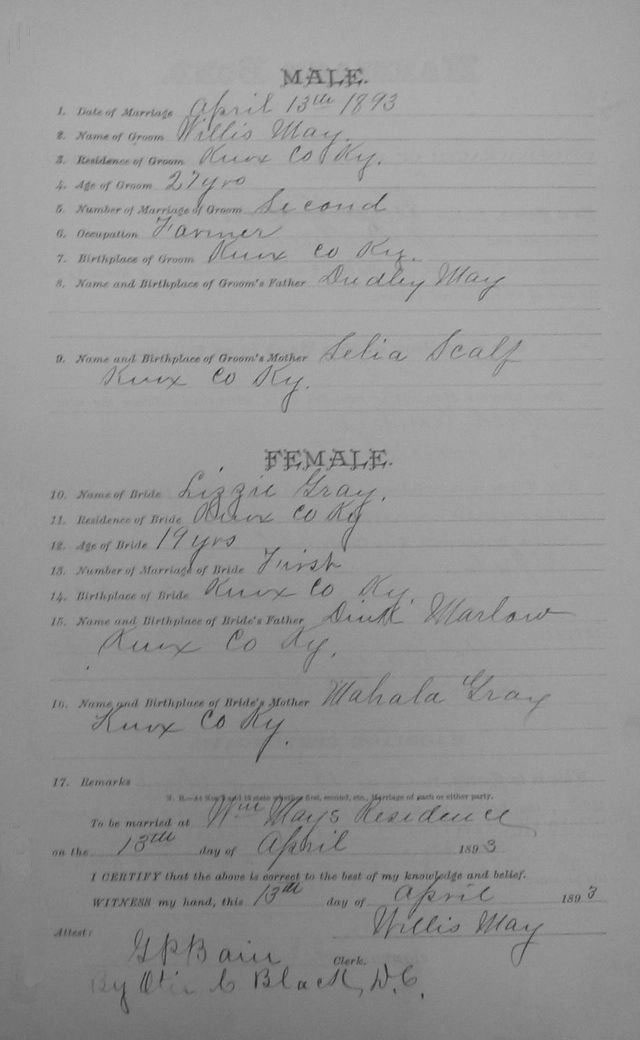 MALE.
1. Date of Marriage April 13th 1893
2. Name of Groom Willis May.
3. Residence of Groom Knox Co Ky.
4. Age of Groom 27 yrs
5. Number of Marriage of Groom Second
6. Occupation Farmer
7. Birthplace of Groom Knox Co Ky.
8. Name and Birthplace of Groom's Father Dudley May
9. Name and Birthplace of Groom's Mother Selia Scalf
Knox Co Ky.
FEMALE.
10. Name of Bride Lizzie Gray.
11. Residence of Bride Knox Co Ky
12. Age of Bride 19 yrs
13. Number of Marriage of Bride First
14. Birthplace of Bride Knox Co Ky.
15. Name and Birthplace of Bride's Father Dink Marlow
Knox Co Ky.
16. Name and Birthplace of Bride's Mother Mahala Gray
Knox Co Ky.
17. Remarks
N. B.—At Nos. 5 and 13 state whether first, second, etc., Marriage of each or either party.
To be married at Wm Mays Residence
on the 13th day of April 1893
I CERTIFY that the above is correct to the best of my knowledge and belief.
WITNESS my hand, this 13th day of April 1893
Willis May
Attest:
G P Bain Clerk.
By Otis C Black, D.C.